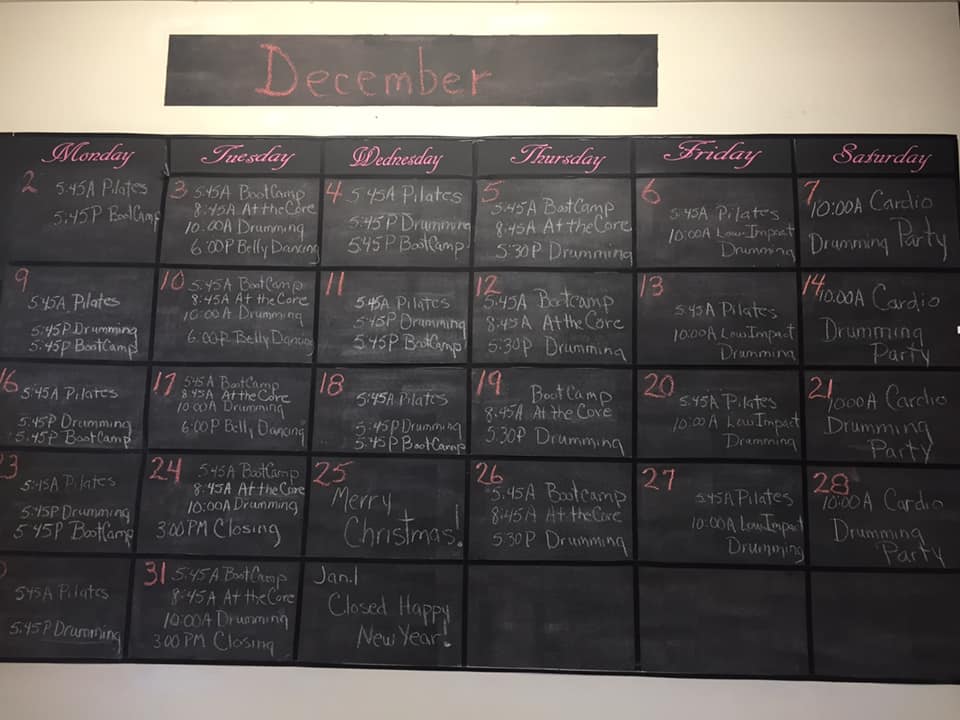 December
Monday Tuesday Wednesday Thursday Friday Saturday
2 5:45A Pilates
5:45P BootCamp
3 5:45A BootCamp
8:45A At the Core
10:00A Drumming
6:00P Belly Dancing
4 5:45A Pilates
5:45P Drumming
5:45P BootCamp
5
5:45A BootCamp
8:45A At the Core
5:30P Drumming
6
5:45A Pilates
10:00A Low Impact
Drumming
7
10:00A Cardio
Drumming Party
9
5:45A Pilates
5:45P Drumming
5:45P BootCamp
10 5:45A BootCamp
8:45A At the Core
10:00A Drumming
6:00P Belly Dancing
11
5:45A Pilates
5:45P Drumming
5:45P BootCamp
12
5:45A Bootcamp
8:45A At the Core
5:30P Drumming
13
5:45A Pilates
10:00A Low Impact
Drumming
14
10:00A Cardio
Drumming
Party
16
5:45A Pilates
5:45P Drumming
5:45P BootCamp
17 5:45A BootCamp
8:45A At the Core
10:00A Drumming
6:00P Belly Dancing
18
5:45A Pilates
5:45P Drumming
5:45P BootCamp
19 BootCamp
8:45A At the Core
5:30P Drumming
20
5:45A Pilates
10:00A Low Impact
Drumming
21
10:00A Cardio
Drumming
Party
23
5:45A Pilates
5:45P Drumming
5:45P BootCamp
24 5:45A BootCamp
8:45A At the Core
10:00A Drumming
3:00PM Closing
25
Merry
Christmas!
26
5:45A Bootcamp
8:45A At the Core
5:30P Drumming
27
5:45A Pilates
10:00A Low Impact
Drumming
28
10:00A Cardio
Drumming
Party
5:45A Pilates
5:45P Drumming
31 5:45A BootCamp
8:45A At the Core
10:00A Drumming
3:00 PM Closing
Jan.1
Closed Happy
New Year!